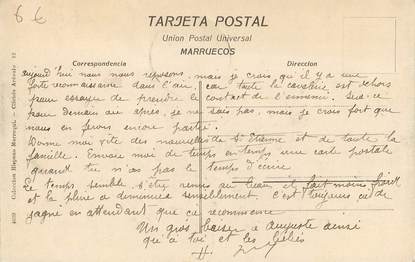 6 €
TARJETA POSTAL
Union Postal Universal
MARRUECOS
Correspondencia
Direccion
aujourd'hui nous nous reposons, mais je crois qu'il y a une
forte reconnaissance dans l'air, car toute la cavalerie est dehors
pour essayer de prendre le contact de l'ennemi. Sera-ce
pour demain ou après, je ne sais pas, mais je crois fort que
nous en ferons encore partie.
Donne moi vite des nouvelles de St Etienne et de toute la
famille. Envoie moi de temps en temps une carte postale
quand tu n'as pas le temps d'écrire
Le temps semble s'être remis au beau, il fait moins froid
et la pluie a diminué sensiblement. C'est toujours ça de
gagné en attendant que ça recommence
Un gros baiser à Auguste ainsi
qu'à toi et les
H.